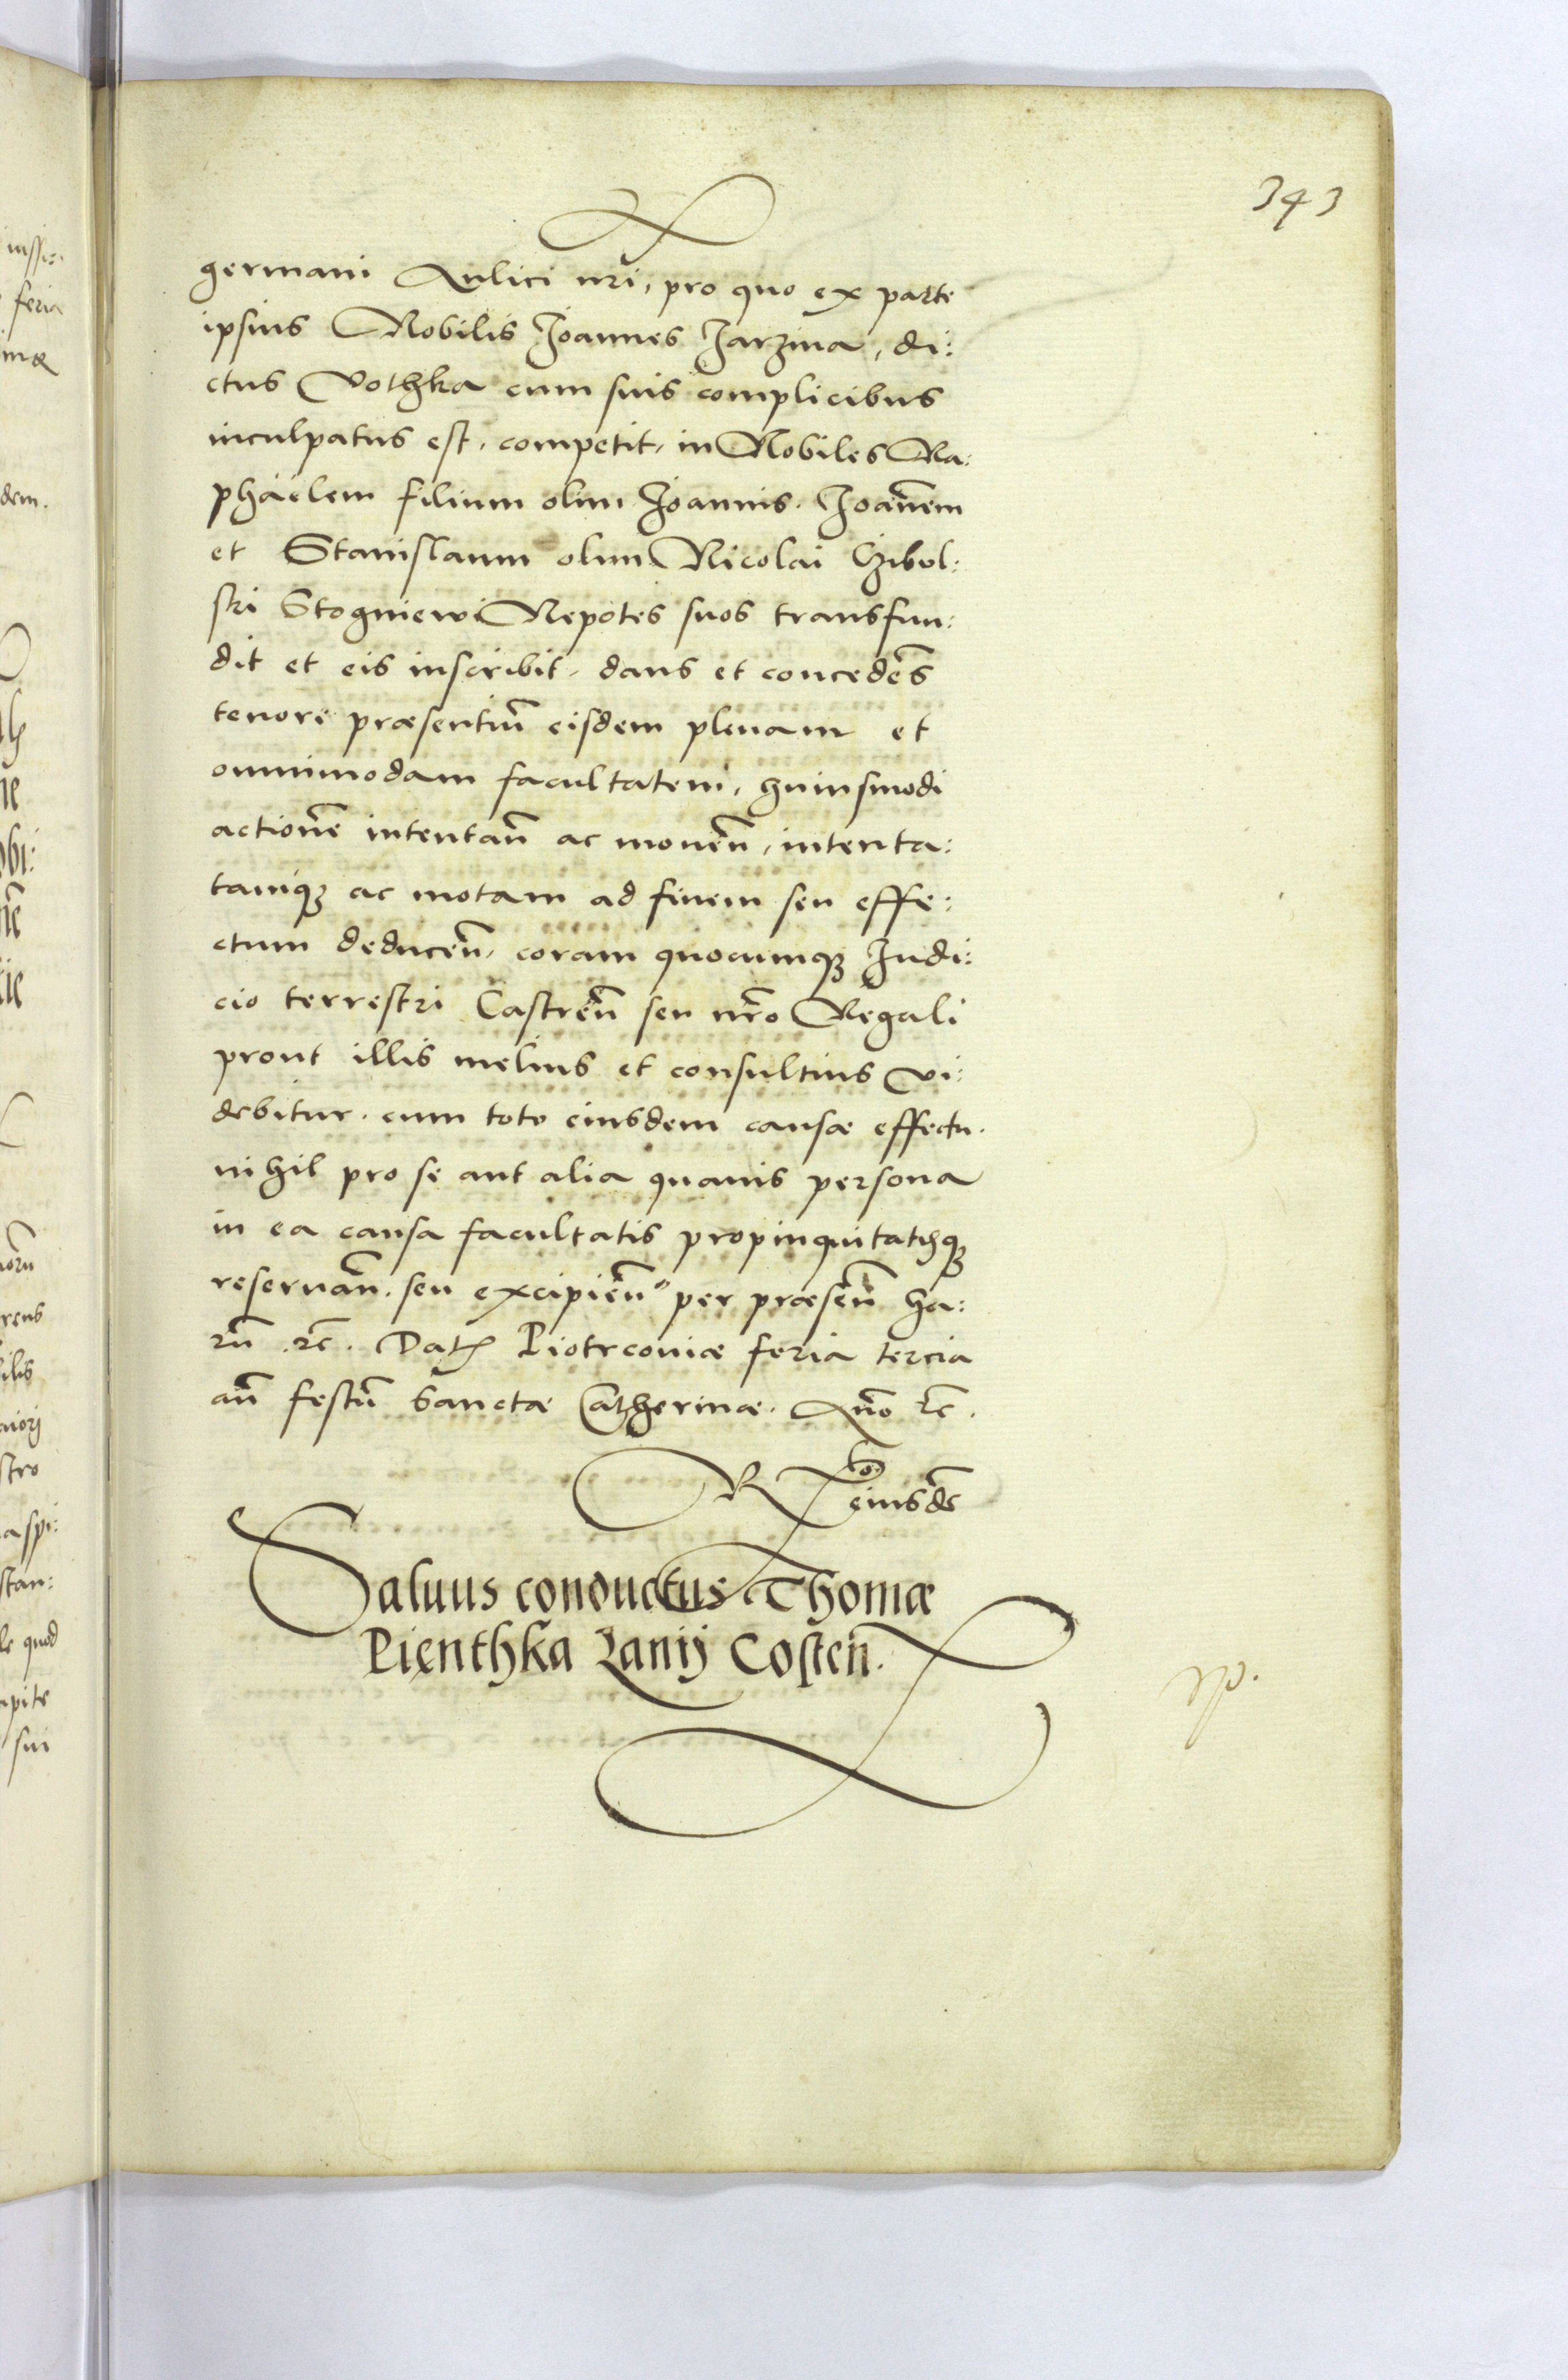 343
germani Aulici nri, pro quo ex parte
ipsius Nobilis Joannes Jarzina, di:
ctus Vothka cum suis complicibus
inculpatus est. competit, in Nobiles Ra:
phaelem filium olim Joannis. Joanem
et Stanislaum olim Nicolai
ski Stogniewi Nepotes suos transfun:
dit et eis inscribit, dans et concedes
tenore præsentiu eisdem plenam et
omnimodam facultatem, huiusmodi
actione intentan ac mouen, intenta:
tamq3 ac motam ad finem seu effe:
ctum deducen, coram quocumq3 Judi:
cio terrestri Castren seu nro Regali
prout illis melius et consultius vi:
debitur. cum toto eiusdem causæ effectu.
nihil pro se aut alia quauis persona
in ea causa facultatis propinquitatisq3
reseruan. seu excipien per præsen ha:
ru etc. Dat Piotrcoviæ feria tercia
an festu Sanctæ Catherinæ. Ano etc.
R eiusde
Saluus conductus Thomæ
Pienthka Lanij Costen.